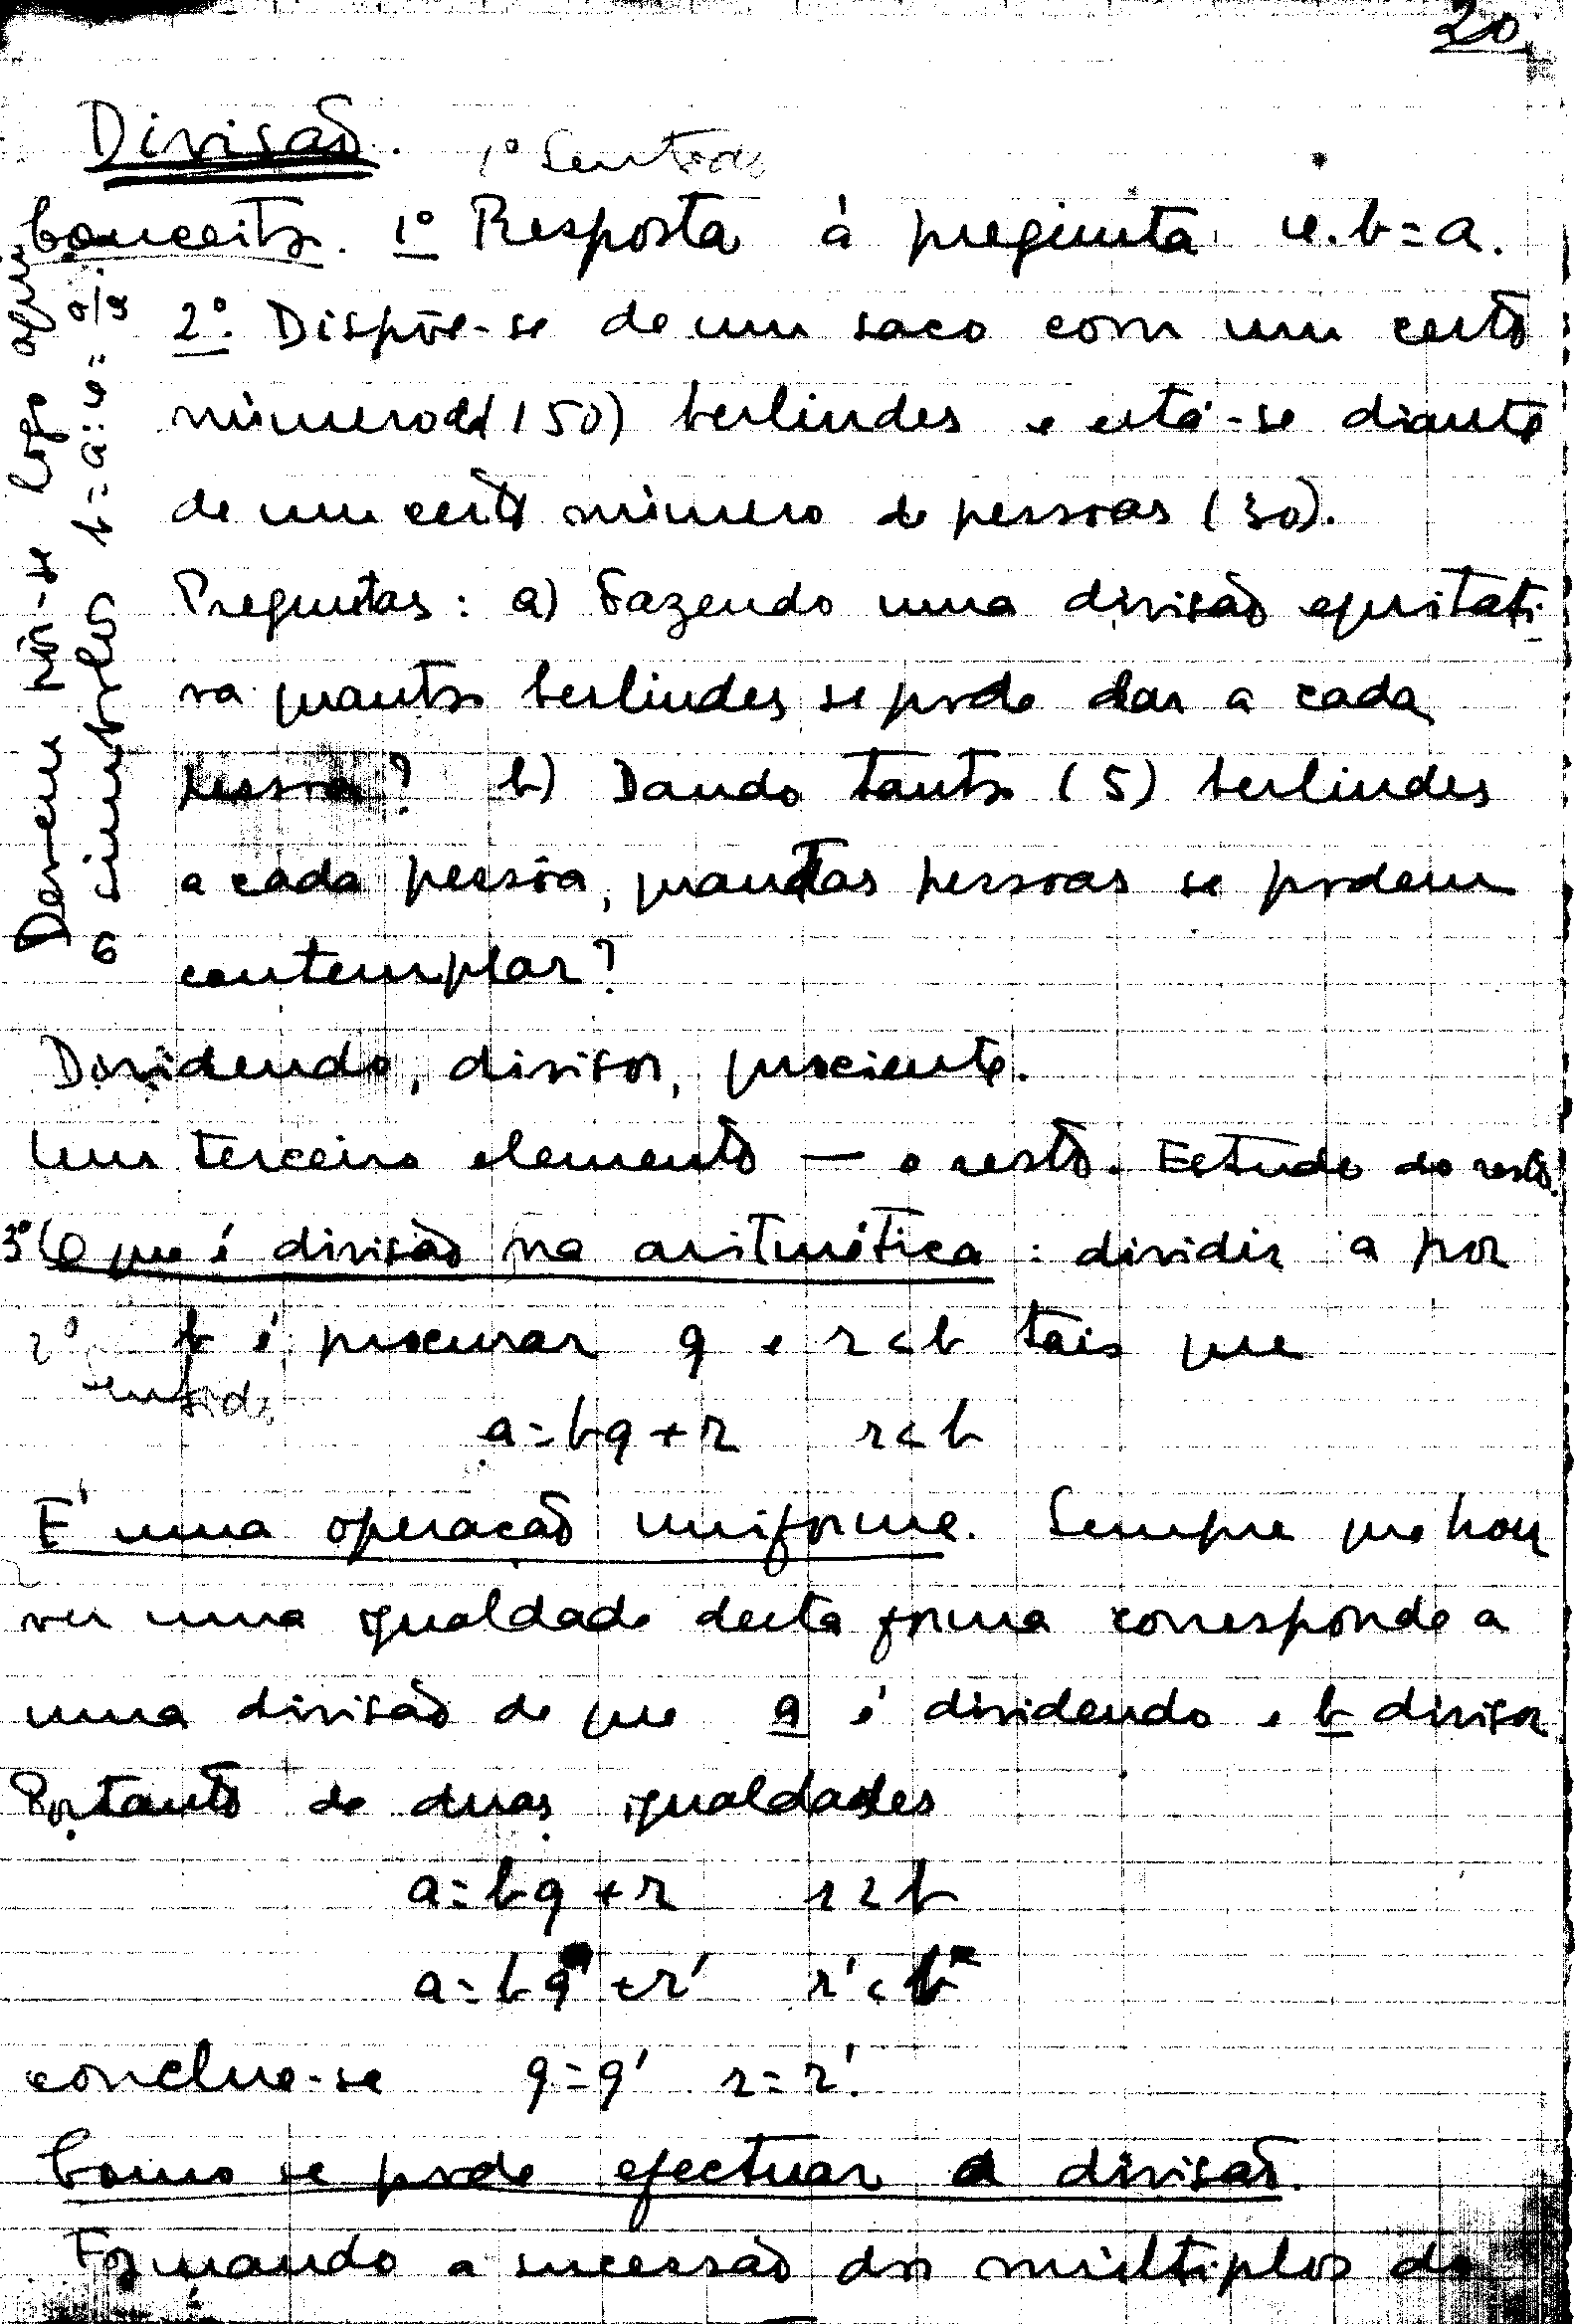 20
Divisão. 1º Sentido
Conceito. 1º Resposta à pregunta x.b=a.
2º. Dispõe-se de um saco com um certo
número (150) berlindes e está-se diante
de um certo número de pessoas (30).
Preguntas: a) Fazendo uma divisão equitati-
va quantos berlindes se pode dar a cada
pessoa? b) Dando tantos (5) berlindes
a cada pessoa, quantas pessoas se podem
contemplar?
Dividendo, divisor, quociente.
Um terceiro elemento — o resto. Estudo do resto!
3º O que é divisão na aritmética: dividir a por
2º sentido
b é procurar q e r<b tais que
a=bq+r r<b
É uma operação uniforme. Sempre que hou
ver uma igualdade desta forma corresponde a
uma divisão de que a é dividendo e b divisor
Portanto de duas igualdades
a=bq+r r<b
a=bq'+r' r'<b
conclue-se q=q' r=r'.
Como se pode efectuar a divisão.
Formando a sucessão dos múltiplos de
Devem pôr-se logo aqui
o simbolos b=a: